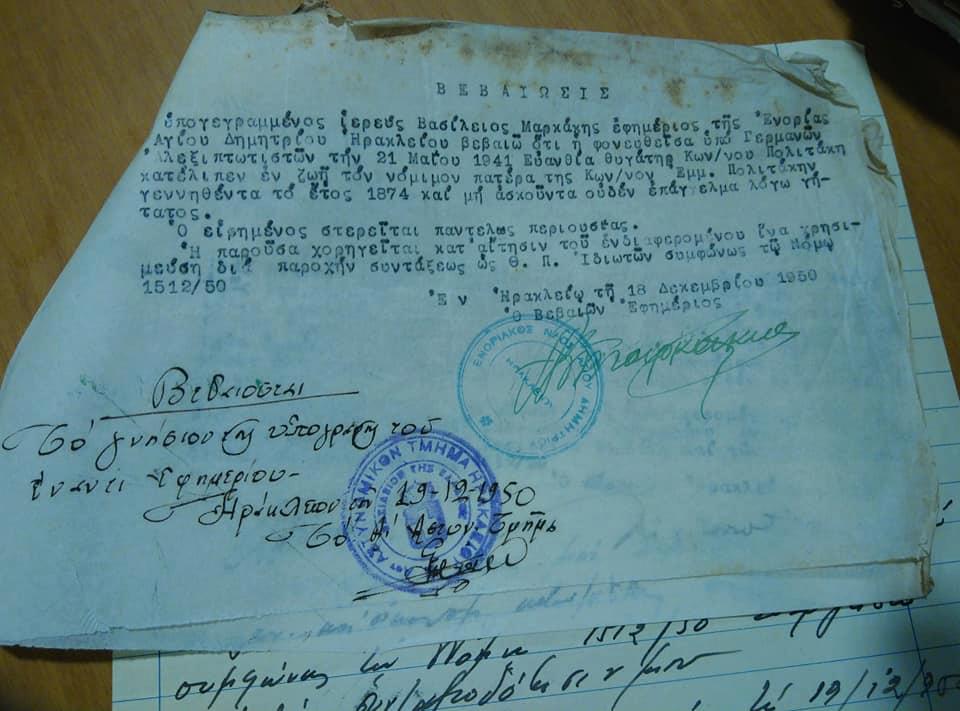 ΒΕΒΑΙΩΣΙΣ
ὑπογεγραμμένος ἱερεύς Βασίλειος Μαρκάκης ἐφημέριος τῆς Ἐνορίας
Αγίου Δημητρίου Ἡρακλείου βεβαιῶ ὅτι ἡ φονευθεῖσα ὑπό Γερμανῶν
Ἀλεξιπτωτιστῶν τήν 21 Μαΐου 1941 Εὐανθία θυγάτηρ Κων/νου Πολιτάκη
κατέλιπεν ἐν ζωῇ τόν νόμιμον πατέρα της Κων/νον Ἐμμ. Πολιτάκην
γεννηθέντα τό ἔτος 1874 καί μή ἀσκοῦντα οὐδέν ἐπάγγελμα λόγω γή-
τατος.
Ὁ εἰρημένος στερεῖται παντελῶς περιουσίας.
Ἡ παροῦσα χορηγεῖται κατ' αἴτησιν τοῦ ἐνδιαφερομένου ἵνα χρησι-
μεύσῃ διά παροχήν συντάξεως ὡς Θ. Π. Ἰδιωτῶν συμφώνως τῷ Νόμῳ
1512/50
Ἐν Ἡρακλείῳ τῇ 18 Δεκεμβρίου 1950
Ὁ Βεβαιῶν Ἐφημέριος
ΕΝΟΡΙΑΚΟΣ ΝΑΟΣ ΑΓΙΟΥ ΔΗΜΗΤΡΙΟΥ
ΗΡΑΚΛΕΙΟΥ
Βεβαιοῦται
Τό γνήσιον τῆς ὑπογραφῆς τοῦ
ἔναντι Ἐφημερίου
Ἡράκλειον τῇ 19-12-1950
Τό Α' Ἀστυν. Τμῆμα
ΑΣΤΥΝΟΜΙΚΟΝ ΤΜΗΜΑ ΗΡΑΚΛΕΙΟΥ
ΒΑΣΙΛΕΙΟΝ ΤΗΣ
συμφώνως τῷ Νόμῳ 1512/50
19/12/950